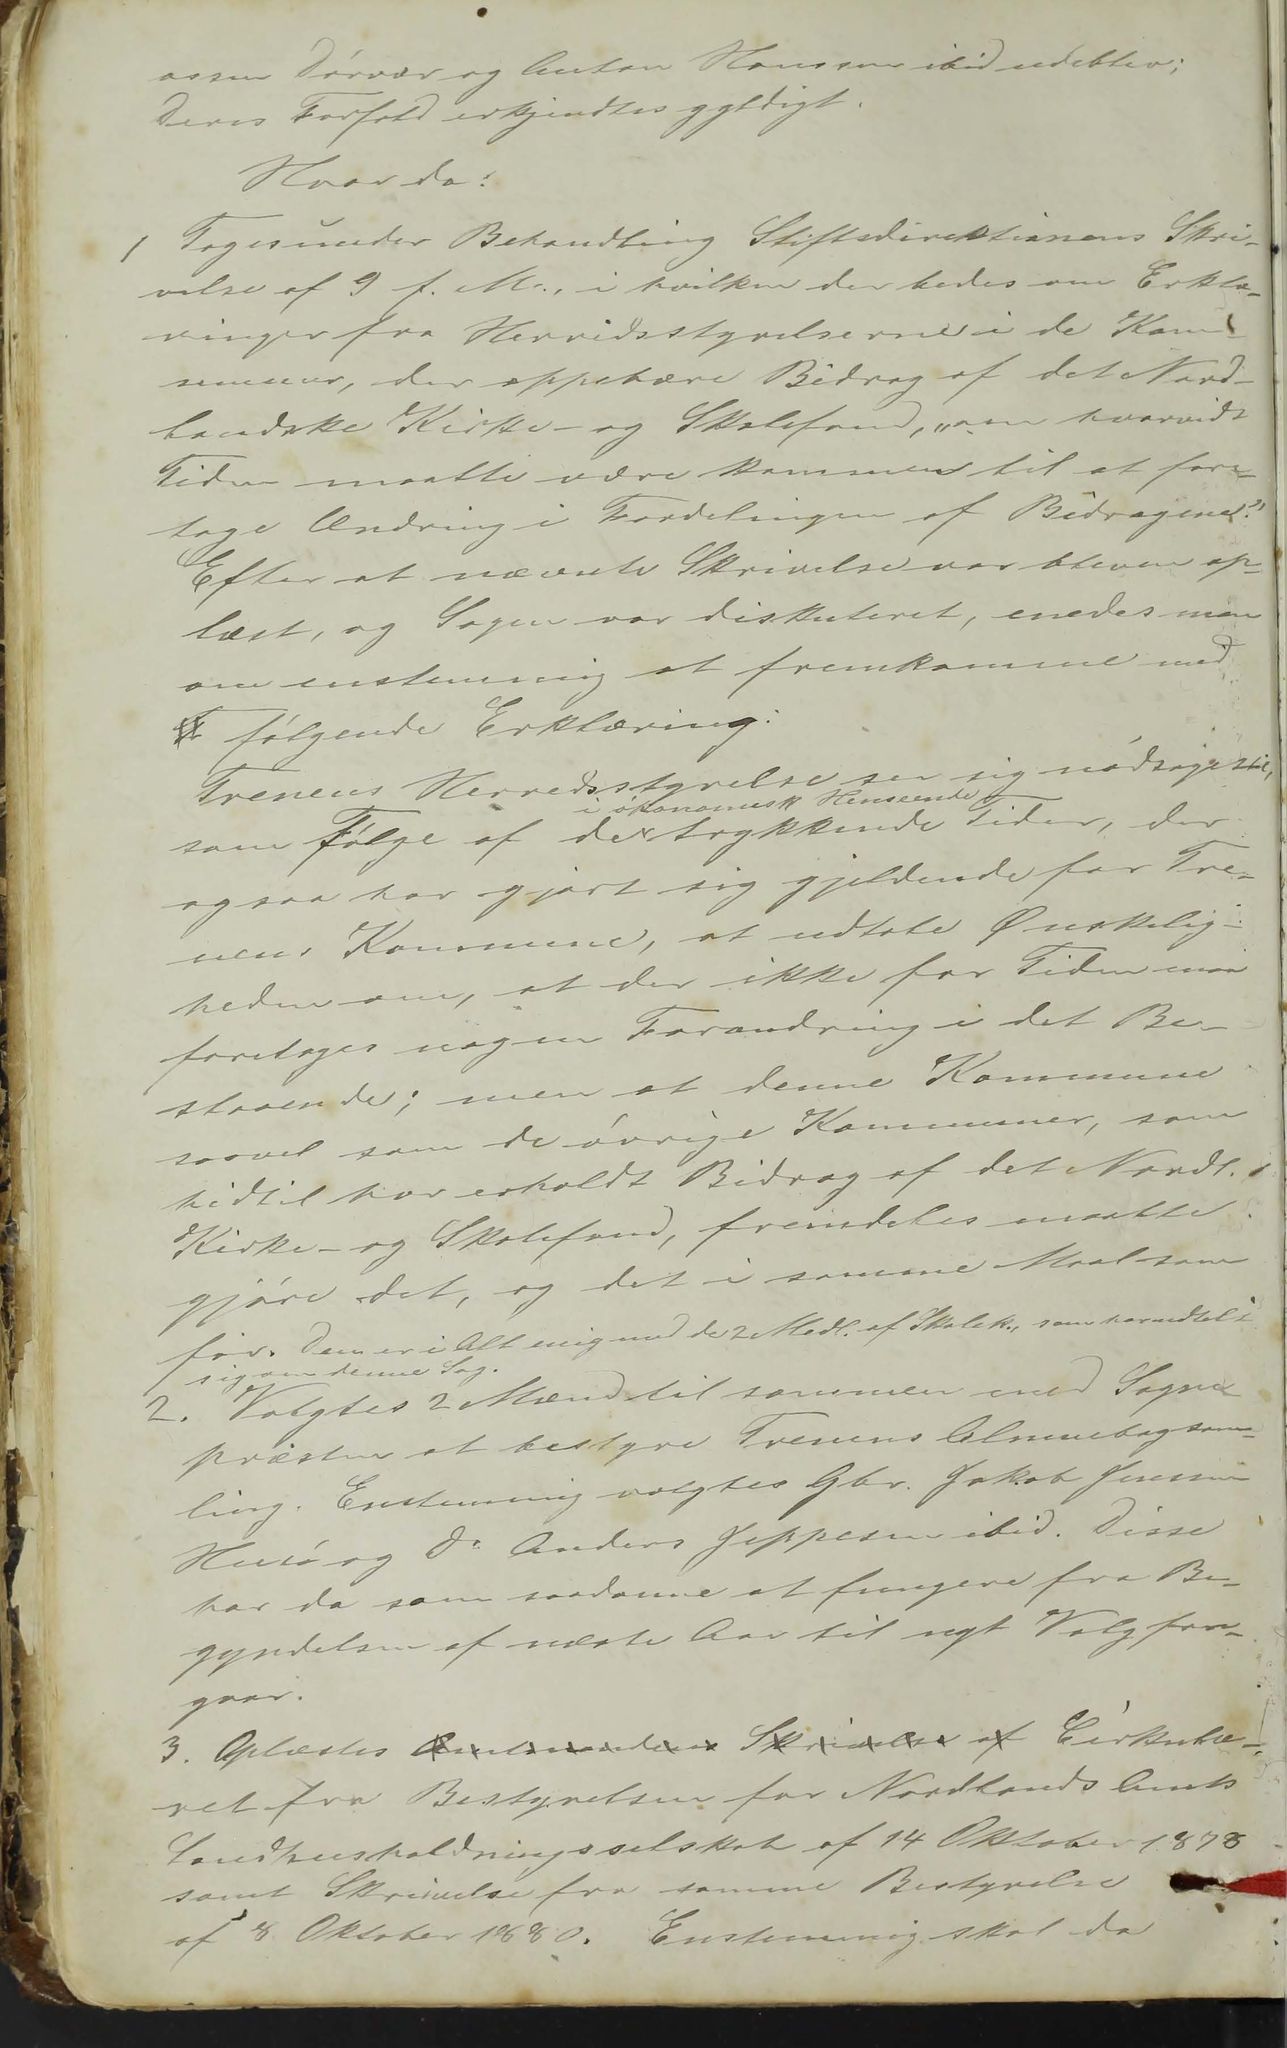 assen Dørvær og Anton Hanssen ibid udeblev;
deres Forfald erkjendtes gyldigt.
Hvor da:
1 Toges under Behandling Stiftsdirektionens Skri-
velse af 9 f. M., i hvilken der bedes om Erklæ-
ringer fra Herredsstyrelserne i de Kom-
muner, der oppebære Bidrag af det Nord-
landske Kirke- og Skolefond, „om hvorvidt
Tiden maatte være kommen til at fore-
tage Ændring i Fordelingen af Bidragene?"
Efter at nævnte Skrivelse var bleven op-
læst, og Sagen var diskuteret, enedes man
om enstemmig at fremkomme med
følgende Erklæring:
Trænens Herredsstyrelse ser sig nødsaget til,
i økonomisk Henseende
som Følge af de trykkende Tider, der
ogsaa har gjort sig gjeldende for Træ-
nens Kommune, at udtale Ønskelig-
heden om, at der ikke for Tiden maa
foretages nogen Forandring i det Be-
staaende; men at denne Kommune
saavel som de øvrige Kommuner, som
hidtil har erholdt Bidrag af det Nordl.
Kirke- og Skolefond, fremdeles maatte
gjøre det, og det i samme Maal som
før. Den er i Alt enig med de 2 Medl. af Skolek., som har udtalt
sig om denne Sag.
2. Valgtes 2 Mænd til sammen med Sogne-
præsten at bestyre Trenens Almuebogsam-
ling. Enstemmig valgtes Gbr. Jakob Jenssen
Husø og Do Anders Jeppesen ibid. Disse
har da som saadanne at fungere fra Be-
gyndelsen af næste Aar til nyt Valg fore-
gaar.
3. Oplæstes Amtmandens Skrivelse af Cirkulæ-
ret fra Bestyrelsen for Nordlands Amts
Landhusholdningsselskab af 14 Oktober 1878
samt Skrivelse fra samme Bestyrelse
af 8 Oktober 1880. Enstemmig skal da